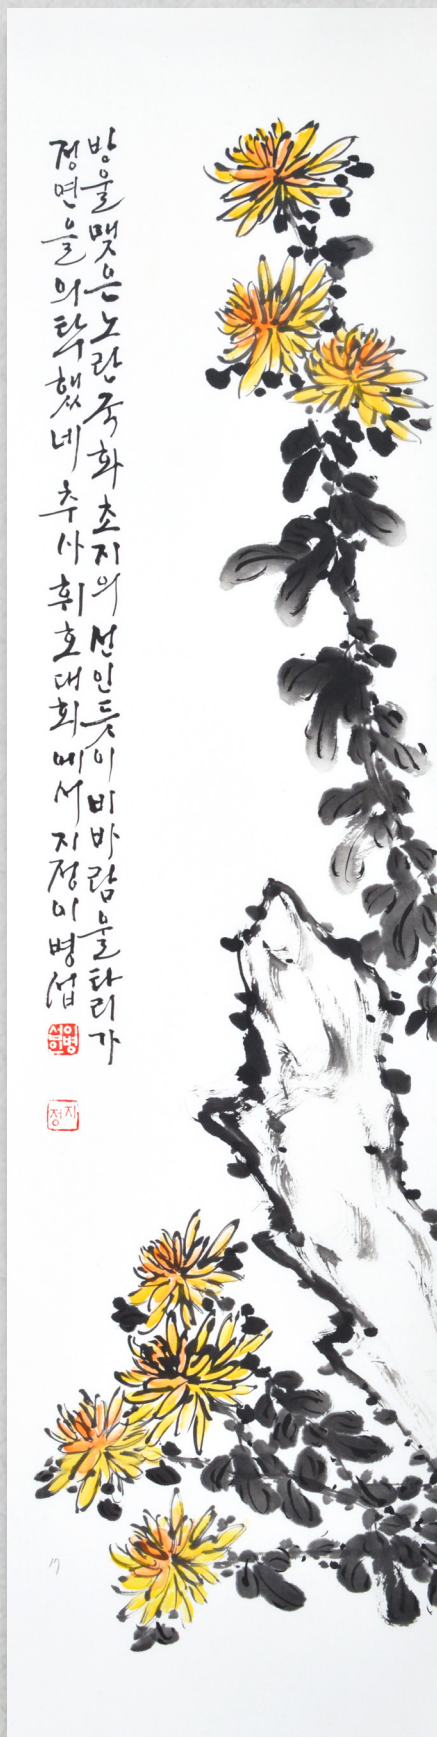 방울맺은노란국화초지의선인듯이비바람울타리가
정면을의탁했네 추사휘호대회에서지정이병섭
이병섭인
지정